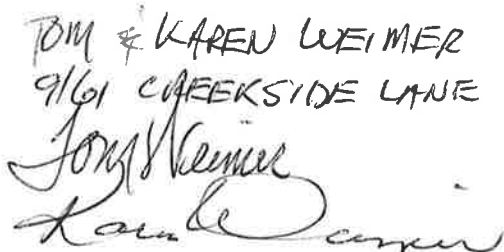 TOM & KAREN WEIMER
9161 CREEKSIDE LANE
Tom Weimer
Karen Weimer